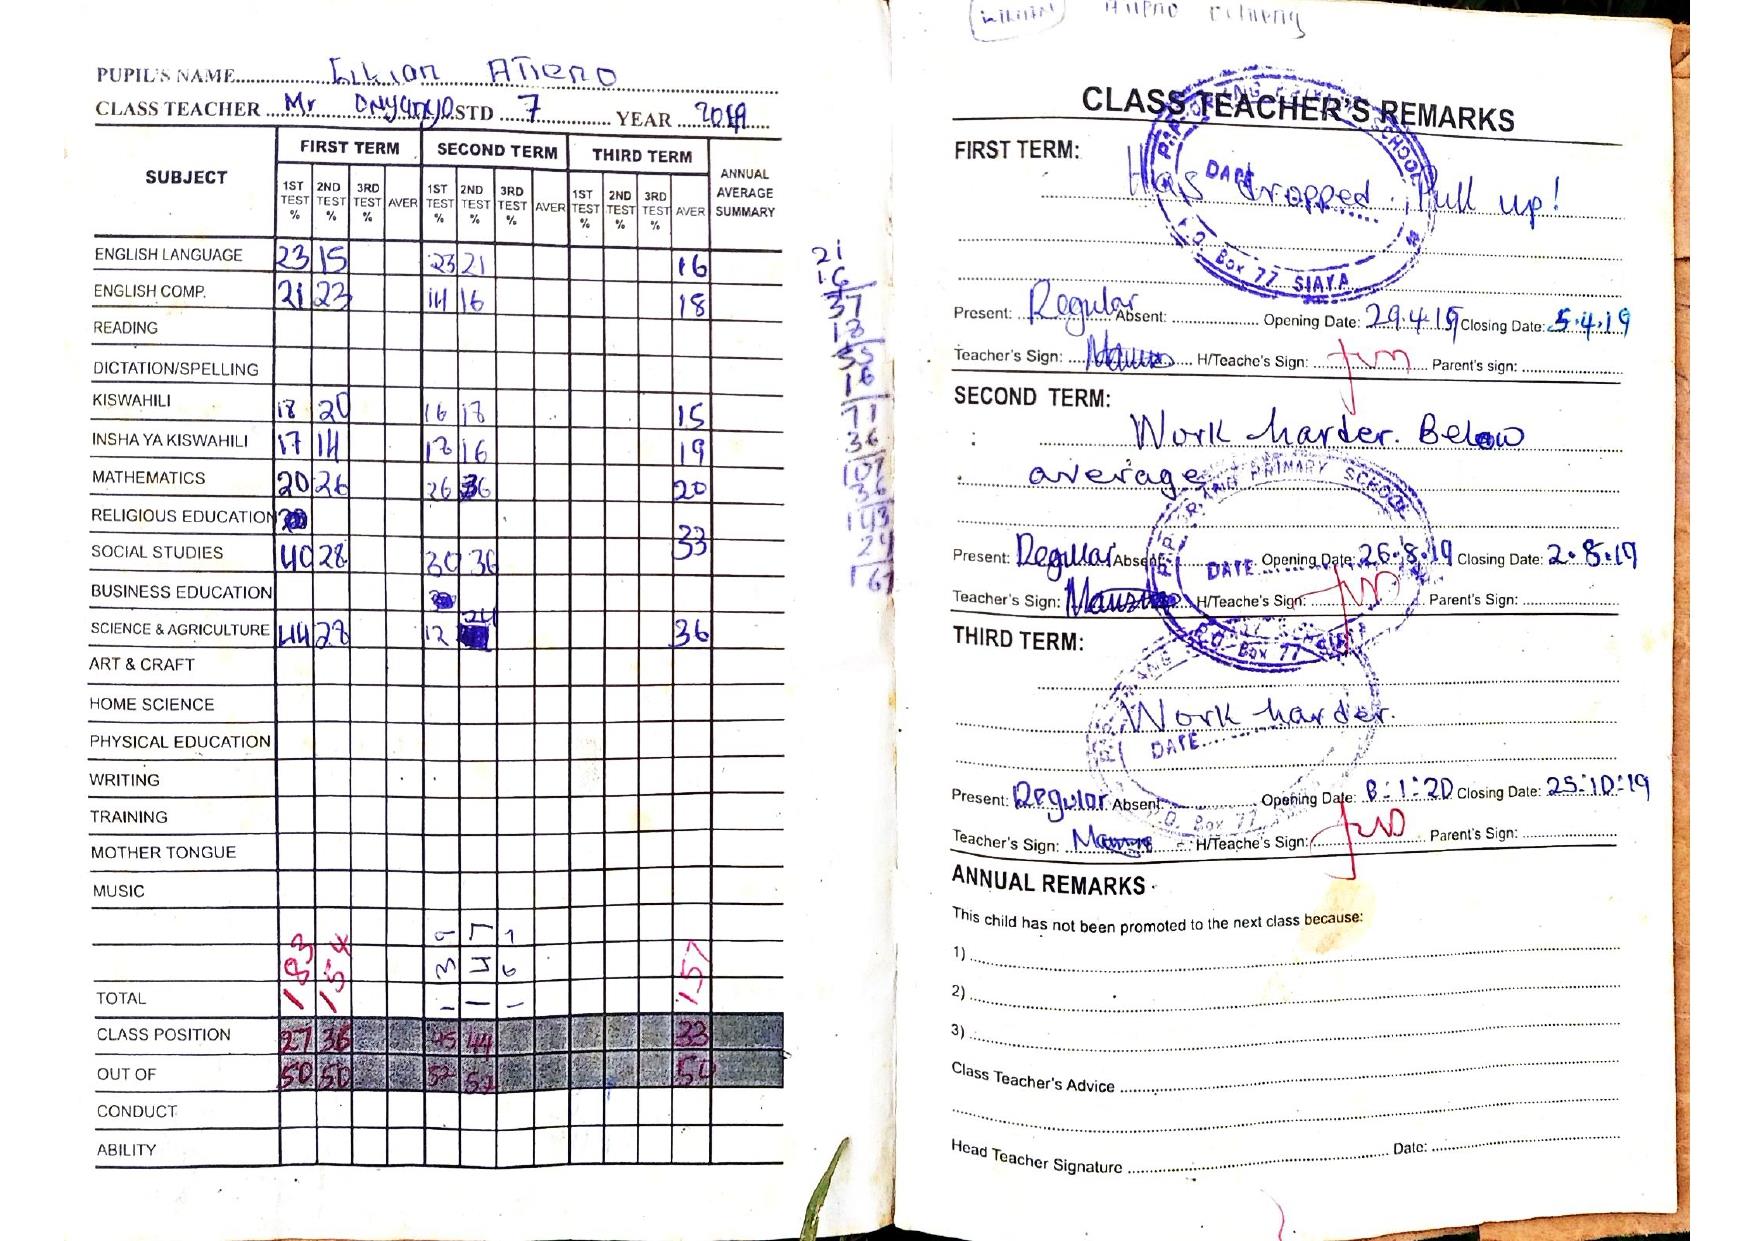 PUPIL'S NAME Lilian Atieno
CLASS TEACHER Mr Onyango STD 7 YEAR 2019
SUBJECT FIRST TERM SECOND TERM THIRD TERM ANNUAL AVERAGE SUMMARY
1ST TEST % 2ND TEST % 3RD TEST % AVER 1ST TEST % 2ND TEST % 3RD TEST % AVER 1ST TEST % 2ND TEST % 3RD TEST % AVER
ENGLISH LANGUAGE 23 15 23 21 16
ENGLISH COMP. 21 23 14 16 18
READING
DICTATION/SPELLING
KISWAHILI 18 20 16 18 15
INSHA YA KISWAHILI 17 14 16 19
MATHEMATICS 20 26 26 36 20
RELIGIOUS EDUCATION
SOCIAL STUDIES 40 28 30 36 33
BUSINESS EDUCATION
SCIENCE & AGRICULTURE 44 28 12 24 36
ART & CRAFT
HOME SCIENCE
PHYSICAL EDUCATION
WRITING
TRAINING
MOTHER TONGUE
MUSIC
TOTAL 183 154 139 167 157
CLASS POSITION 27 36 45 44 33
OUT OF 50 50 52 52
CONDUCT
ABILITY
21
16
37
18
55
16
71
36
107
36
143
24
167
Atieno
CLASS TEACHER'S REMARKS
FIRST TERM:
Has dropped. Pull up!
DATE
P.O. Box 77 SIAYA
Present: Regular Absent: Opening Date: 29.4.19 Closing Date: 5.4.19
Teacher's Sign: H/Teache's Sign: Parent's sign:
SECOND TERM:
Work harder. Below
average
PRIMARY SCHOOL
Present: Regular Absent: Opening Date: 26.8.19 Closing Date: 2.8.19
DATE
Teacher's Sign: H/Teache's Sign: Parent's Sign:
P.O. Box 77
THIRD TERM:
Work harder.
DATE
Present: Regular Absent: Opening Date: 6:1:20 Closing Date: 25:10:19
P.O. Box 77
Teacher's Sign: H/Teache's Sign: Parent's Sign:
ANNUAL REMARKS
This child has not been promoted to the next class because:
1)
2)
3)
Class Teacher's Advice
Head Teacher Signature Date: